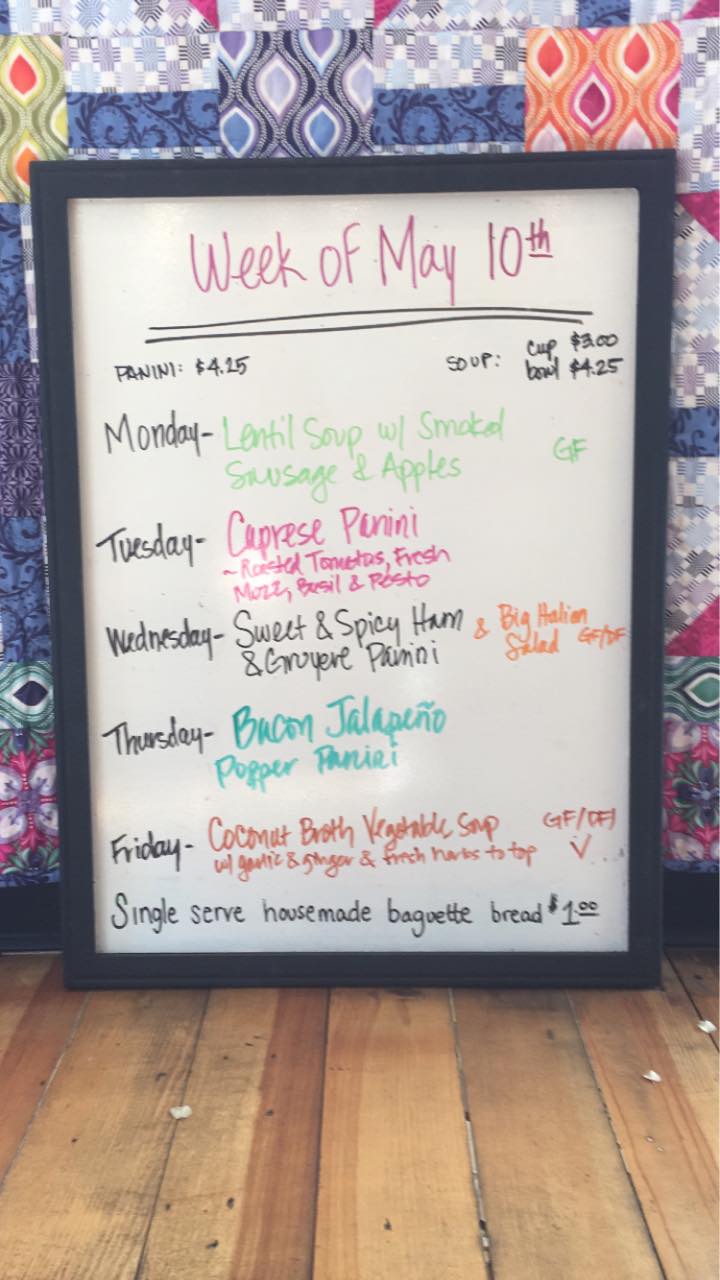 Week of May 10th
PANINI: $4.25
SOUP: cup $3.00
bowl $4.25
Monday- Lentil Soup w/ Smoked
Sausage & Apples GF
Tuesday- Caprese Panini
~ Roasted Tomatoes, Fresh
Mozz, Basil & Pesto
Wednesday- Sweet & Spicy Ham
& Gruyere Panini
& Big Italian
Salad GF/DF
Thursday- Bacon Jalapeño
Popper Panini
Friday- Coconut Broth Vegetable Soup GF/DF/
w/ garlic & ginger & fresh herbs to top V
Single serve housemade baguette bread $1.00